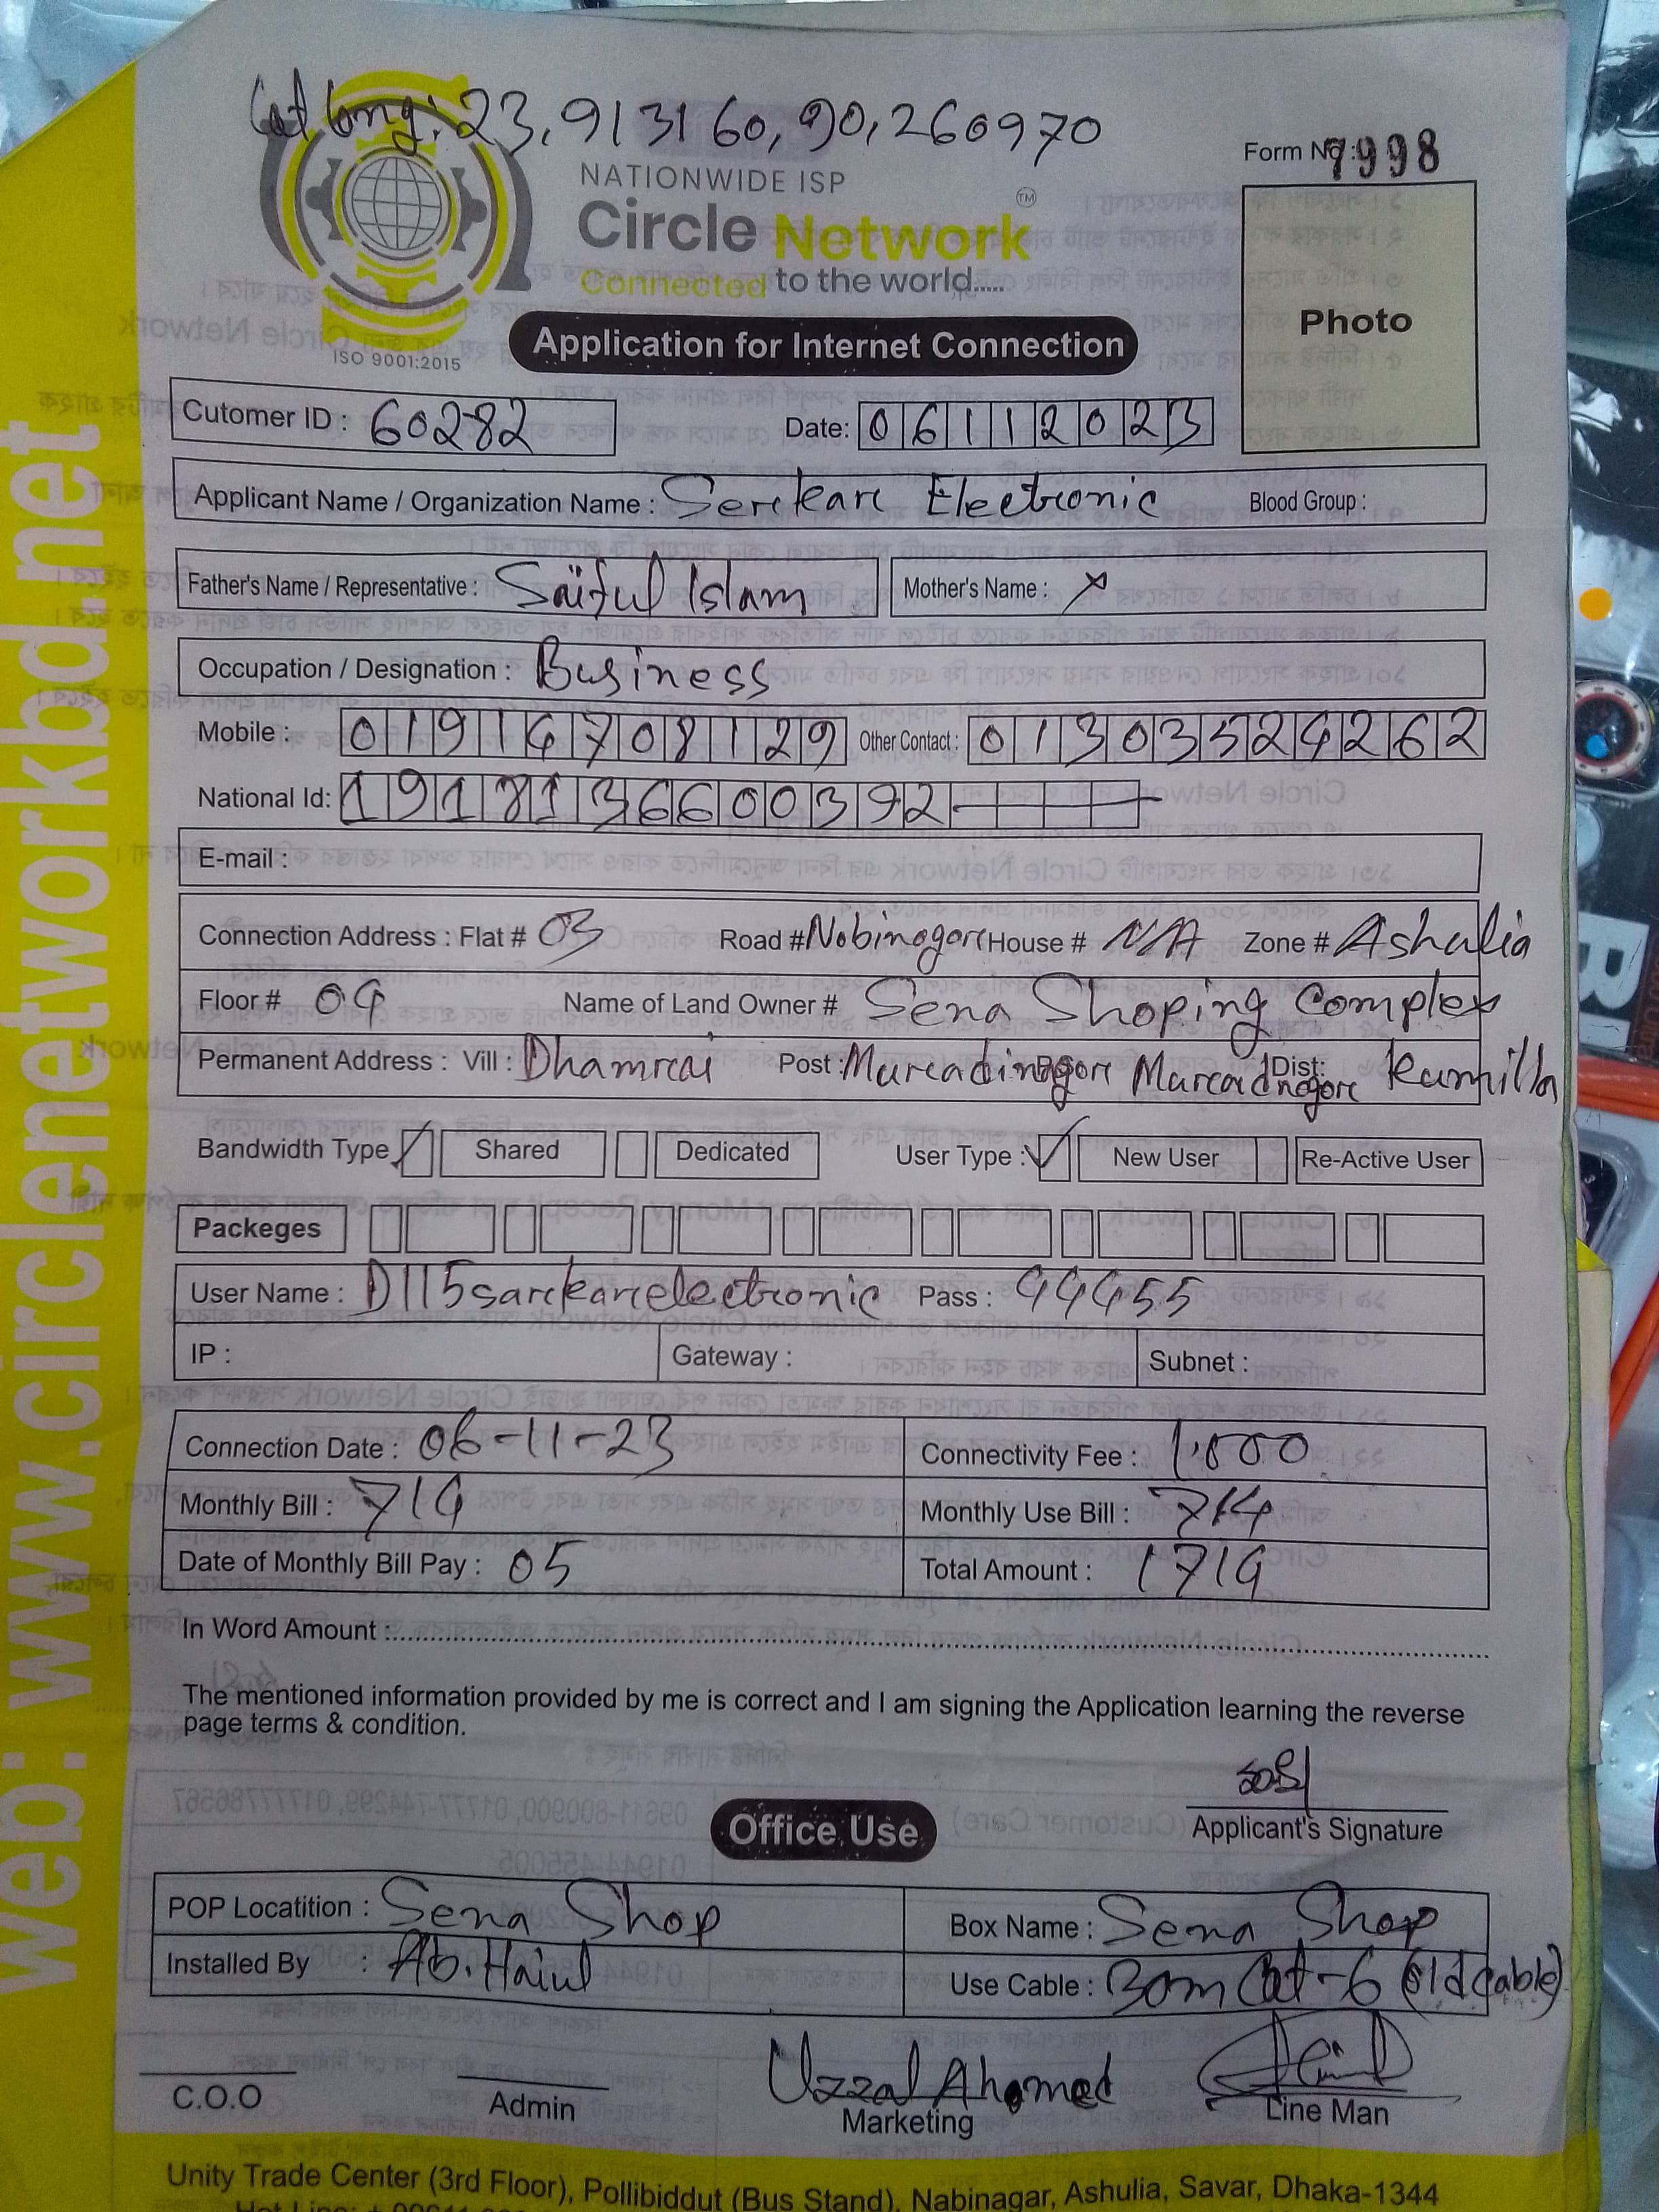 Lat Long: 23.913160, 90.260970
Form No : 7998
NATIONWIDE ISP
Circle Network TM
Connected to the world.....
ISO 9001:2015
Application for Internet Connection
Photo
Cutomer ID : 60282 Date: 06112023
Applicant Name / Organization Name : Serkear Electronic Blood Group :
Father's Name / Representative : Saiful Islam Mother's Name : x
Occupation / Designation : Business
Mobile : 01914708129 Other Contact : 01303524262
National Id: 1918136600392
E-mail :
Connection Address : Flat # 03 Road # Nobinogore House # N/A Zone # Ashulia
Floor # 04 Name of Land Owner # Sena Shoping Complex
Permanent Address : Vill : Dhamrai Post : Muradinagore Muradnagore Dist: Kumilla
Bandwidth Type Shared Dedicated User Type : New User Re-Active User
Packeges
User Name : D115sarkarelectronic Pass : 44455
IP : Gateway : Subnet :
Connection Date : 06-11-23 Connectivity Fee : 1.000
Monthly Bill : 714 Monthly Use Bill : 714
Date of Monthly Bill Pay : 05 Total Amount : 1714
In Word Amount :
The mentioned information provided by me is correct and I am signing the Application learning the reverse
page terms & condition.
Applicant's Signature
Office Use
POP Locatition : Sena Shop Box Name : Sena Shop
Installed By : Ab. Haiul Use Cable : 30m Cat-6 (old cable)
C.O.O Admin Uzzal Ahamed Marketing Line Man
Unity Trade Center (3rd Floor), Pollibiddut (Bus Stand), Nabinagar, Ashulia, Savar, Dhaka-1344
web: www.circlenetworkbd.net